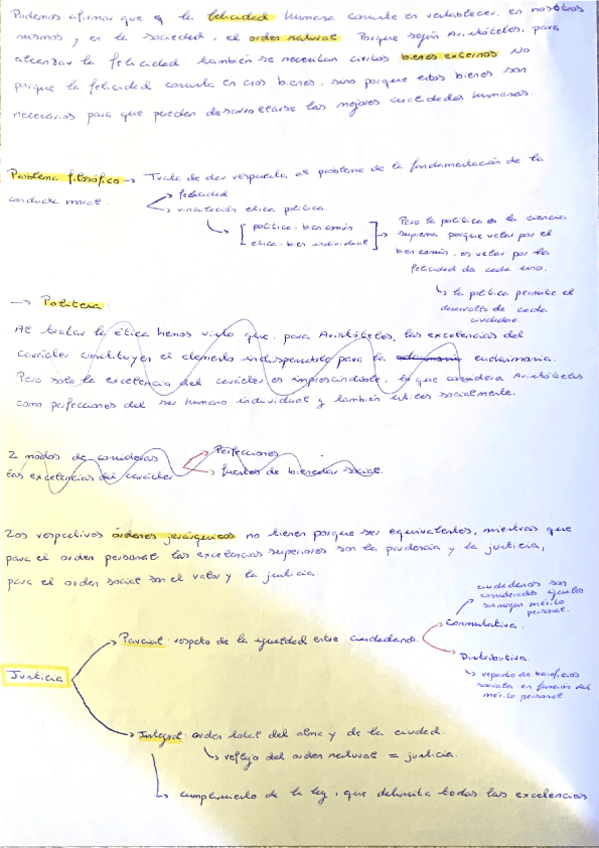 Podemos afirmar que la felicidad humana consiste en restablecer, en nosotros
mismos y en la sociedad, el orden natural. Porque según Aristóteles, para
alcanzar la felicidad también se necesitan ciertos bienes externos. No
porque la felicidad consista en esos bienes, sino porque estos bienes son
necesarios para que puedan desarrollarse las mejores cualidades humanas.
Problema filosófico → Trata de dar respuesta al problema de la fundamentación de la
conducta moral.
felicidad
vinculación ética política.
política - bien común
ética - bien individual
Pero la política es la ciencia
suprema porque velar por el
bien común, es velar por la
felicidad de cada uno.
la política permite el
desarrollo de cada
ciudadano
→ Política
Al tratar la ética hemos visto que, para Aristóteles, las excelencias del
carácter constituyen el elemento indispensable para la eudaimonia.
Pero solo la excelencia del carácter es imprescindible, lo que considera Aristóteles
como perfecciones del ser humano individual y también útiles socialmente.
2 modos de considerar
las excelencias del carácter
Perfecciones
fuentes de bienestar social.
Los respectivos órdenes jerárquicos no tienen porque ser equivalentes, mientras que
para el orden personal las excelencias superiores son la prudencia y la justicia,
para el orden social son el valor y la justicia.
Justicia
Parcial: respeto de la igualdad entre ciudadanos.
Conmutativa.
ciudadanos son
considerados iguales
sin mérito
personal.
Distributiva.
reparto de beneficios
sociales en función del
mérito personal.
Integral: orden total del alma y de la ciudad.
reflejo del orden natural = justicia.
cumplimiento de la ley, que delimita todas las excelencias